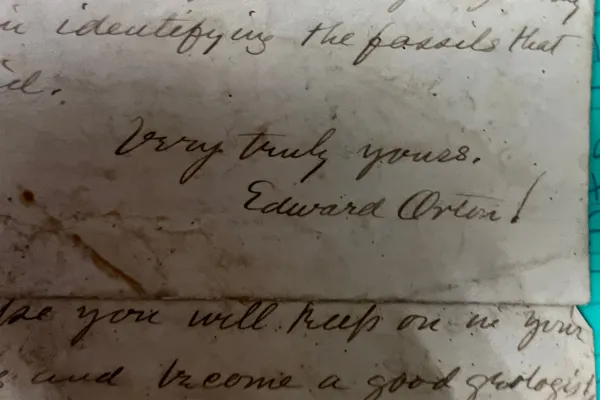 in identifying the fossils that
Very truly yours.
Edward Orton!
you will keep on in your
and become a good geologist